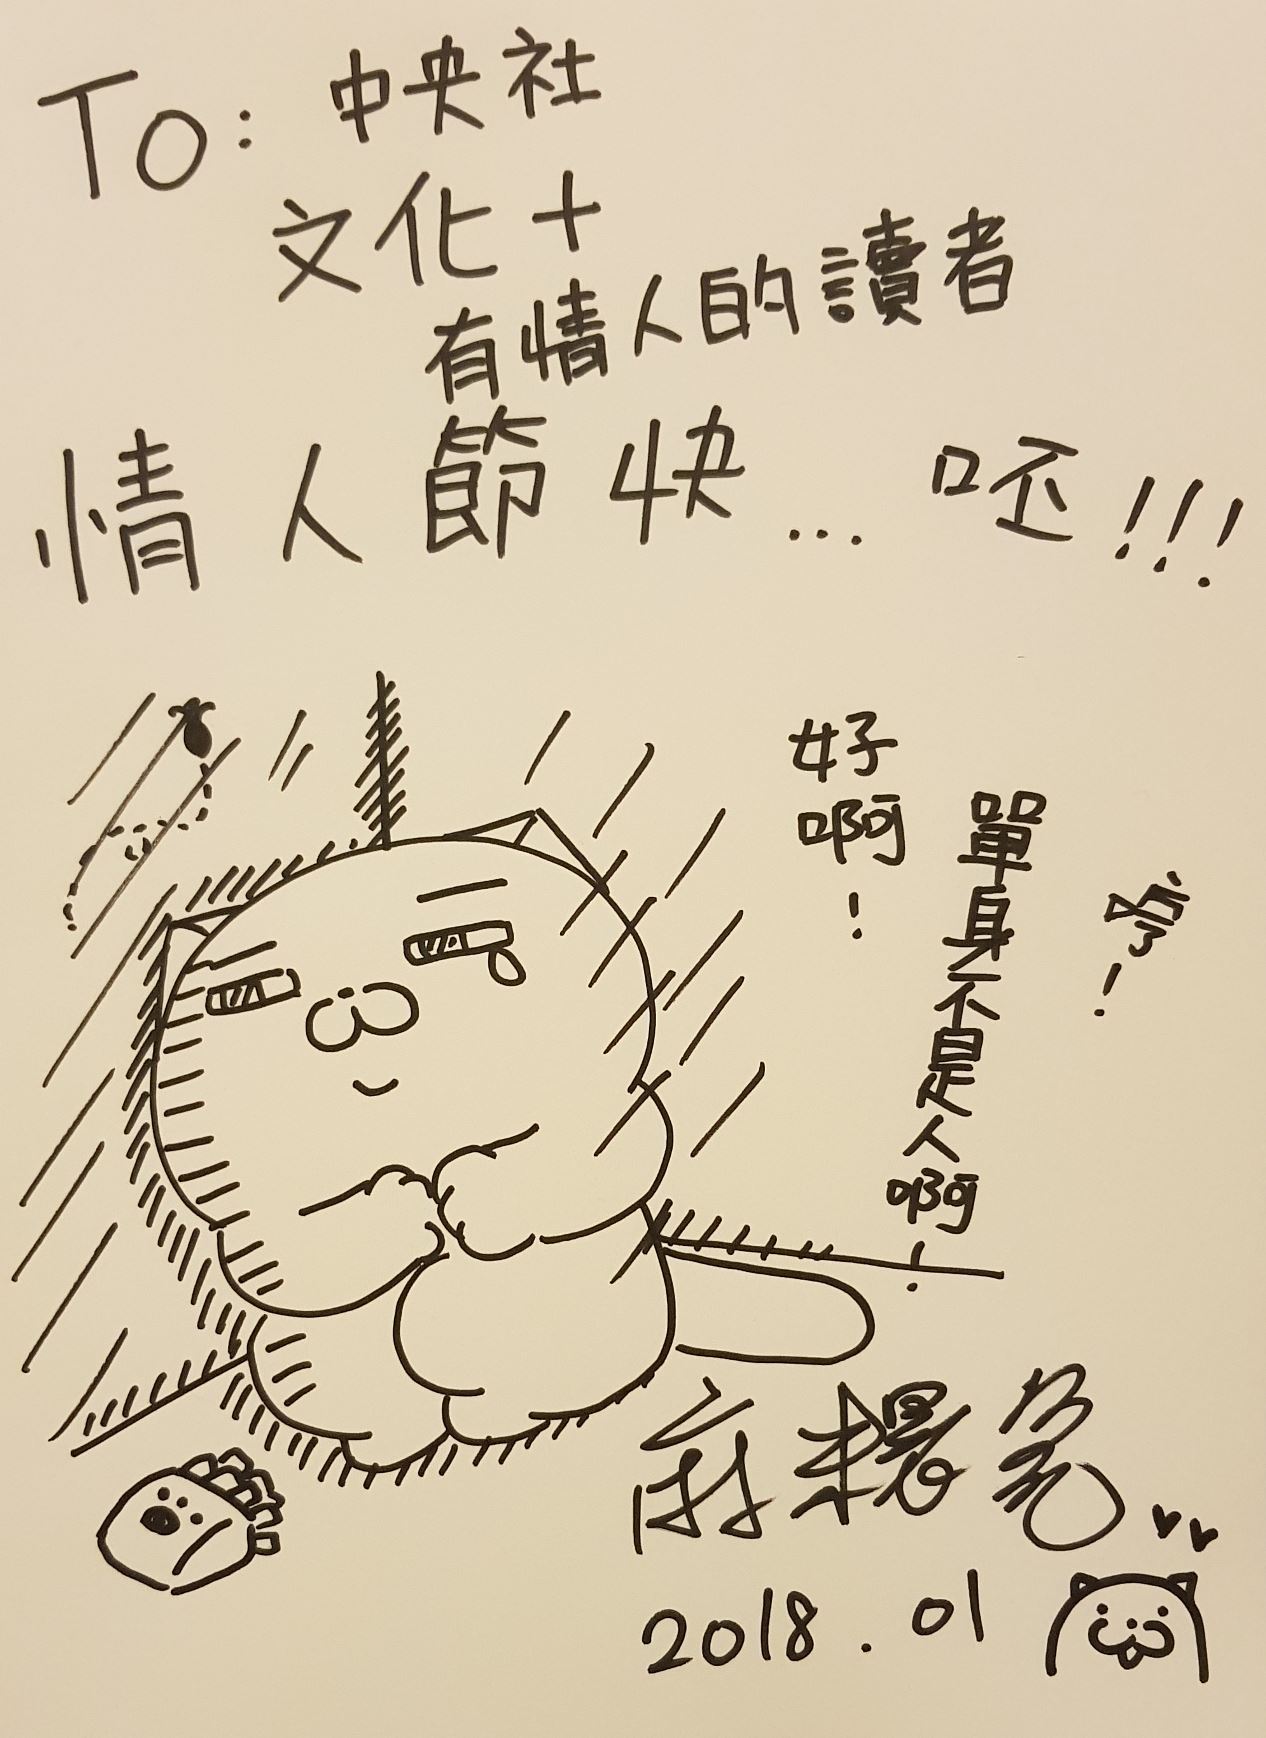 To: 中央社
文化+
有情人的讀者
情人節快... 呸!!!
哼!
單身不是人啊!
好啊!
麻糬爸
2018.01